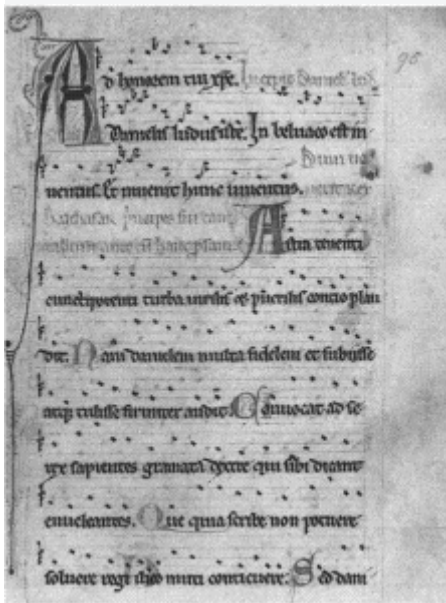 95
Ad honorem tui xpe. Incipit Danielis lud
Danielis ludus iste. In beluaco est in
Dum ue
uentus. Et inuenit hunc iuuentus.
balthasar principes sui can
ante eu hanc prosam Astra tenenti
cunctipotenti turba uirilis et puerilis contio plau
dit. Nam danielem multa fidelem et subiisse
atq; tulisse firmiter audit. Conuocat ad se
rex sapientes gramata dextre qui sibi dicant
enucleantes. Que quia scribe non potuere
soluere regi ilico muti conticuere. Sed dani